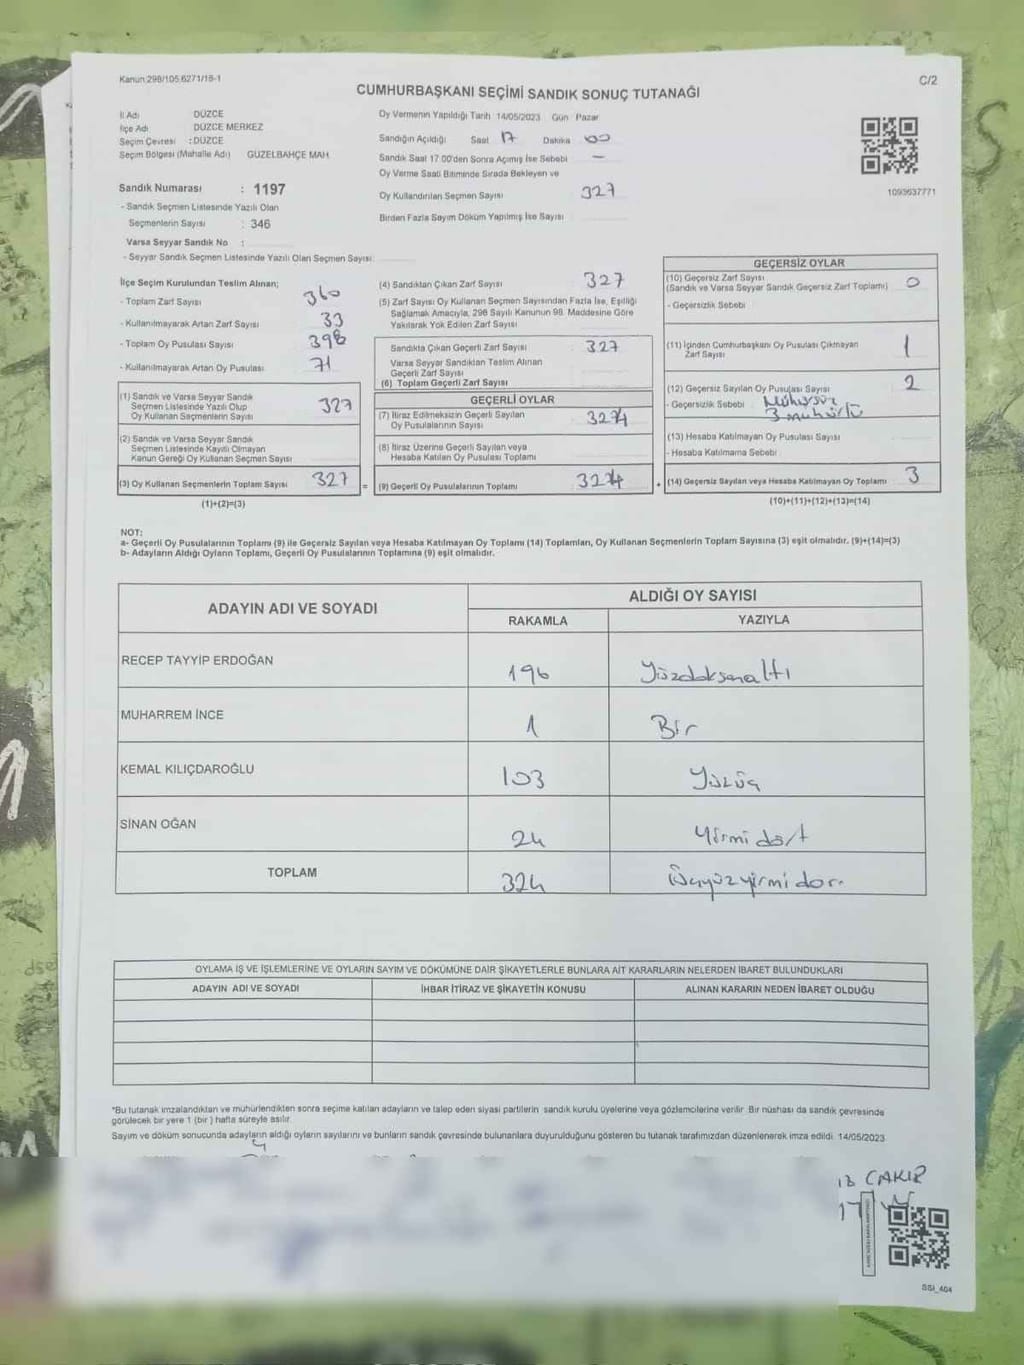 Kanun 298/105,6271/18-1
C/2
CUMHURBAŞKANI SEÇİMİ SANDIK SONUÇ TUTANAĞI
İl Adı DÜZCE
İlçe Adı DÜZCE MERKEZ
Seçim Çevresi : DÜZCE
Seçim Bölgesi (Mahalle Adı) GÜZELBAHÇE MAH.
Sandık Numarası : 1197
- Sandık Seçmen Listesinde Yazılı Olan
Seçmenlerin Sayısı : 346
Varsa Seyyar Sandık No :
- Seyyar Sandık Seçmen Listesinde Yazılı Olan Seçmen Sayısı:
Oy Vermenin Yapıldığı Tarih 14/05/2023 Gün : Pazar
Sandığın Açıldığı Saat 17 Dakika 00
Sandık Saat 17.00'den Sonra Açımış İse Sebebi –
Oy Verme Saati Bitiminde Sırada Bekleyen ve
Oy Kullandırılan Seçmen Sayısı 327
Birden Fazla Sayım Döküm Yapılmış İse Sayısı
1093637771
İlçe Seçim Kurulundan Teslim Alınan;
- Toplam Zarf Sayısı 360
- Kullanılmayarak Artan Zarf Sayısı 33
- Toplam Oy Pusulası Sayısı 398
- Kullanılmayarak Artan Oy Pusulası 71
(1) Sandık ve Varsa Seyyar Sandık
Seçmen Listesinde Yazılı Olup
Oy Kullanan Seçmenlerin Sayısı 327
(2) Sandık ve Varsa Seyyar Sandık
Seçmen Listesinde Kayıtlı Olmayan
Kanun Gereği Oy Kullanan Seçmen Sayısı
(3) Oy Kullanan Seçmenlerin Toplam Sayısı 327
(1)+(2)=(3)
(4) Sandıktan Çıkan Zarf Sayısı 327
(5) Zarf Sayısı Oy Kullanan Seçmen Sayısından Fazla İse, Eşitliği
Sağlamak Amacıyla, 298 Sayılı Kanunun 98. Maddesine Göre
Yakılarak Yok Edilen Zarf Sayısı
Sandıkta Çıkan Geçerli Zarf Sayısı 327
Varsa Seyyar Sandıktan Teslim Alınan
Geçerli Zarf Sayısı
(6) Toplam Geçerli Zarf Sayısı
GEÇERLİ OYLAR
(7) İtiraz Edilmeksizin Geçerli Sayılan
Oy Pusulalarının Sayısı 324
(8) İtiraz Üzerine Geçerli Sayılan veya
Hesaba Katılan Oy Pusulası Toplamı
= (9) Geçerli Oy Pusulalarının Toplamı 324 +
GEÇERSİZ OYLAR
(10) Geçersiz Zarf Sayısı
(Sandık ve Varsa Seyyar Sandık Geçersiz Zarf Toplamı) 0
- Geçersizlik Sebebi
(11) İçinden Cumhurbaşkanı Oy Pusulası Çıkmayan
Zarf Sayısı 1
(12) Geçersiz Sayılan Oy Pusulası Sayısı 2
- Geçersizlik Sebebi Mühürsüz
3 mühürlü
(13) Hesaba Katılmayan Oy Pusulası Sayısı
- Hesaba Katılmama Sebebi
(14) Geçersiz Sayılan veya Hesaba Katılmayan Oy Toplamı 3
(10)+(11)+(12)+(13)=(14)
NOT:
a- Geçerli Oy Pusulalarının Toplamı (9) ile Geçersiz Sayılan veya Hesaba Katılmayan Oy Toplamı (14) Toplamları, Oy Kullanan Seçmenlerin Toplam Sayısına (3) eşit olmalıdır. (9)+(14)=(3)
b- Adayların Aldığı Oyların Toplamı, Geçerli Oy Pusulalarının Toplamına (9) eşit olmalıdır.
ADAYIN ADI VE SOYADI
ALDIĞI OY SAYISI
RAKAMLA YAZIYLA
RECEP TAYYİP ERDOĞAN 196 Yüzdoksanaltı
MUHARREM İNCE 1 Bir
KEMAL KILIÇDAROĞLU 103 Yüzüç
SİNAN OĞAN 24 Yirmi dört
TOPLAM 324 Üçyüzyirmi dör
OYLAMA İŞ VE İŞLEMLERİNE VE OYLARIN SAYIM VE DÖKÜMÜNE DAİR ŞİKAYETLERLE BUNLARA AİT KARARLARIN NELERDEN İBARET BULUNDUKLARI
ADAYIN ADI VE SOYADI İHBAR İTİRAZ VE ŞİKAYETİN KONUSU ALINAN KARARIN NEDEN İBARET OLDUĞU
*Bu tutanak imzalandıktan ve mühürlendikten sonra seçime katılan adayların ve talep eden siyasi partilerin sandık kurulu üyelerine veya gözlemcilerine verilir. Bir nüshası da sandık çevresinde
görülecek bir yere 1 (bir) hafta süreyle asılır.
Sayım ve döküm sonucunda adayların aldığı oyların sayılarını ve bunların sandık çevresinde bulunanlara duyurulduğunu gösteren bu tutanak tarafımızdan düzenlenerek imza edildi. 14/05/2023
ÇAKIR
SSİ_404